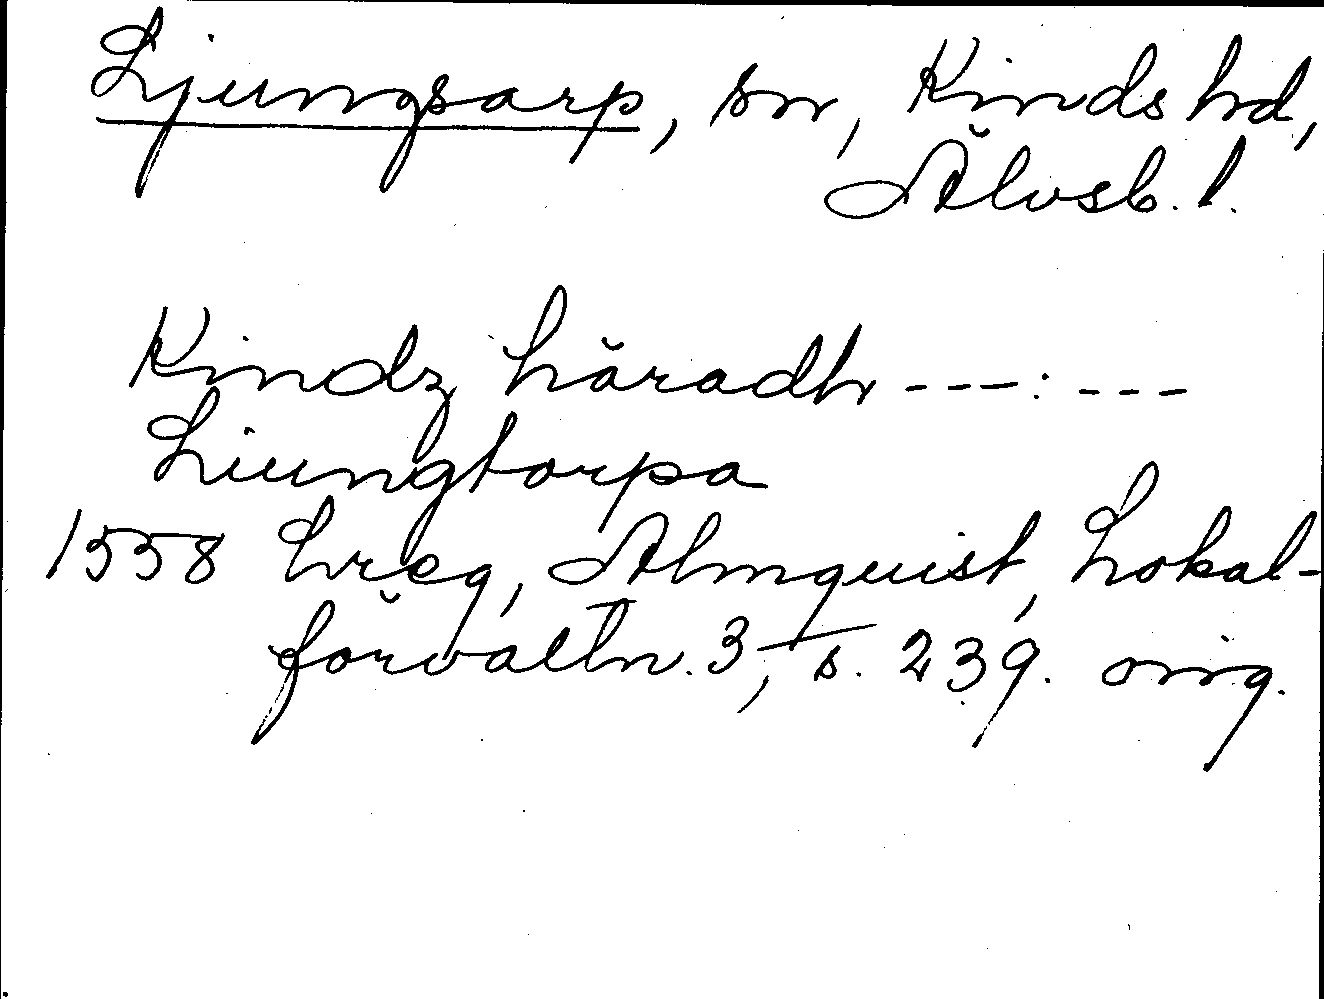 Ljungsarp, sn, Kinds hd,
Älvsb. l.
Kindz häradh ---:---
Liungtorpa
1558 Lreg, Almquist, Lokal-
förvaltn. 3, s. 239. orig.